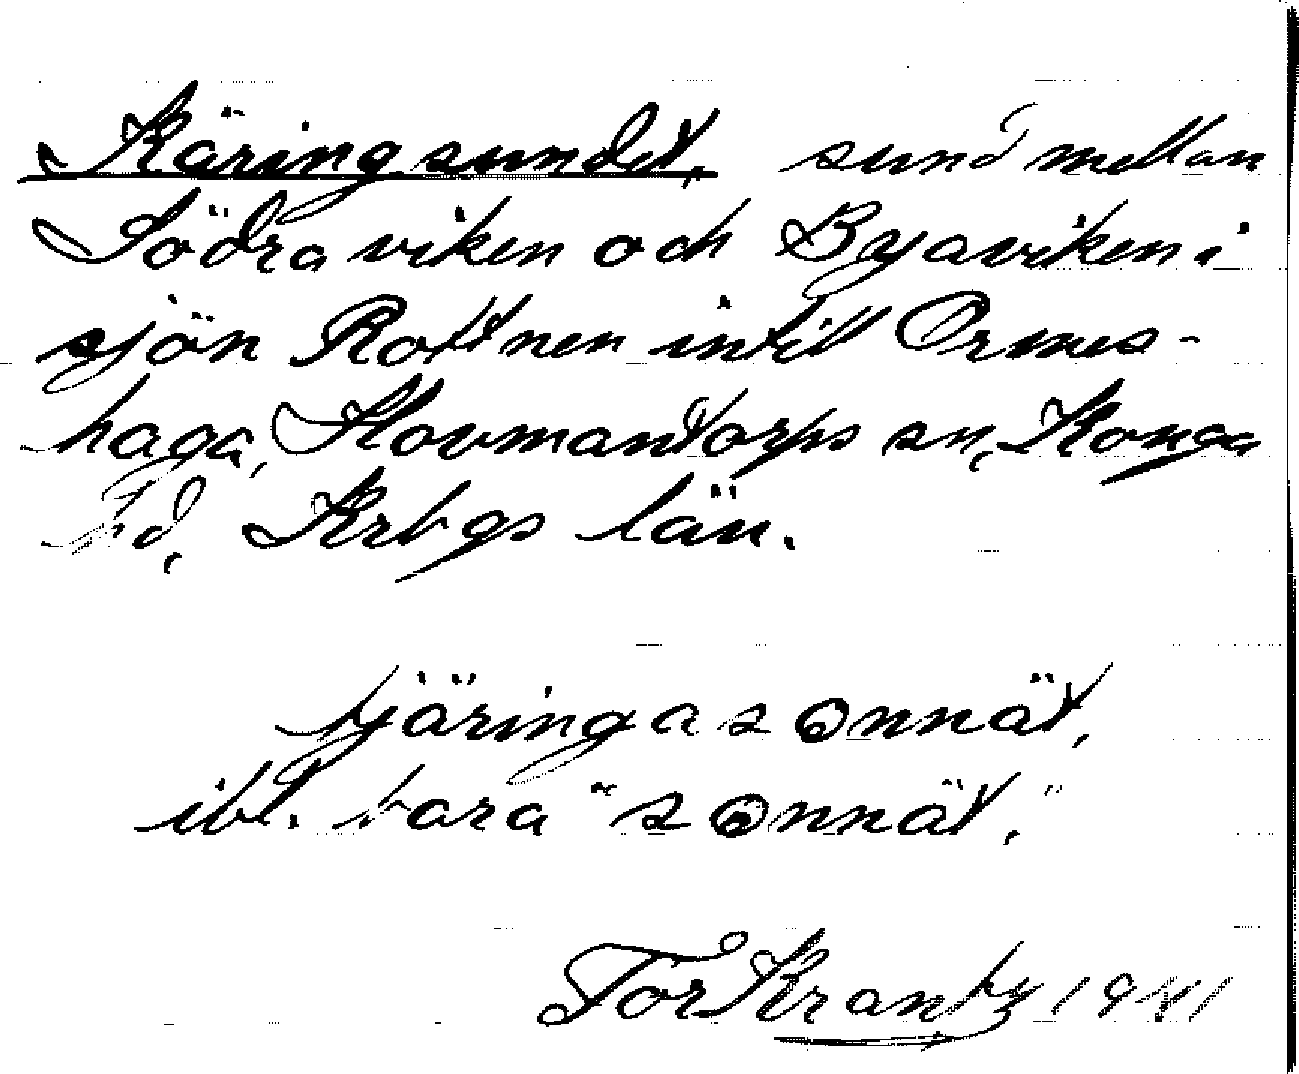 Käringsundet, sund mellan
Södra viken och Byaviken i
sjön Rottnen intill Ormes-
haga, Hovmantorps sn, Konga
hd, Krbgs län.
tjäringasonnät,
ibl. bara "sonnät."
Tor Krantz 1941